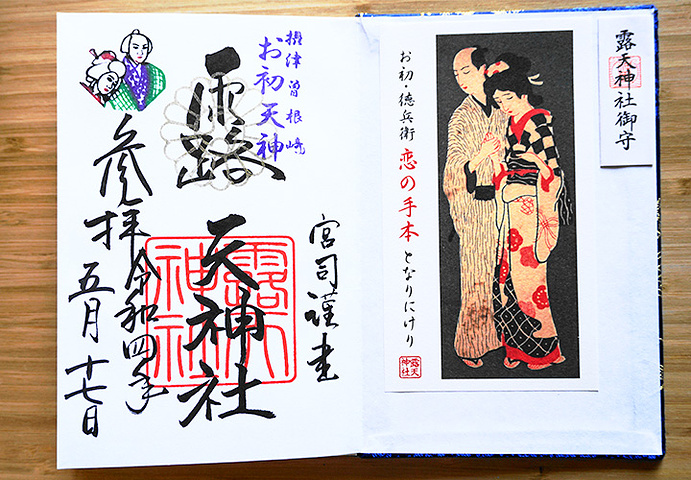 摂津曽根崎
お初天神
露
天神社
宮司謹書
参拝
令和四年
五月十七日
露天神社
お初・徳兵衛
恋の手本
となりにけり
露天
神社
露天神社御守